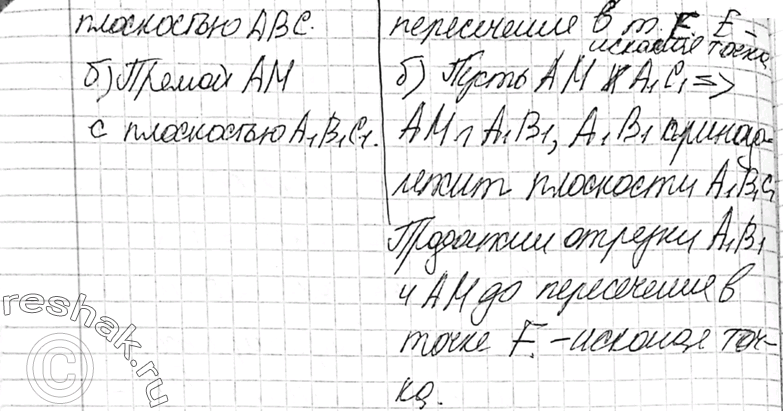 плоскостью ABC.
б) Прямой AM
с плоскостью A₁B₁C₁.
пересечение в т. E. E –
искомая точка
б) Пусть AM ∦ A₁C₁ =>
AM ∩ A₁B₁, A₁B₁ принад-
лежит плоскости A₁B₁C₁
Продолжим отрезки A₁B₁
и AM до пересечение в
точке F. – искомая точ-
ка.
reshak.ru
©